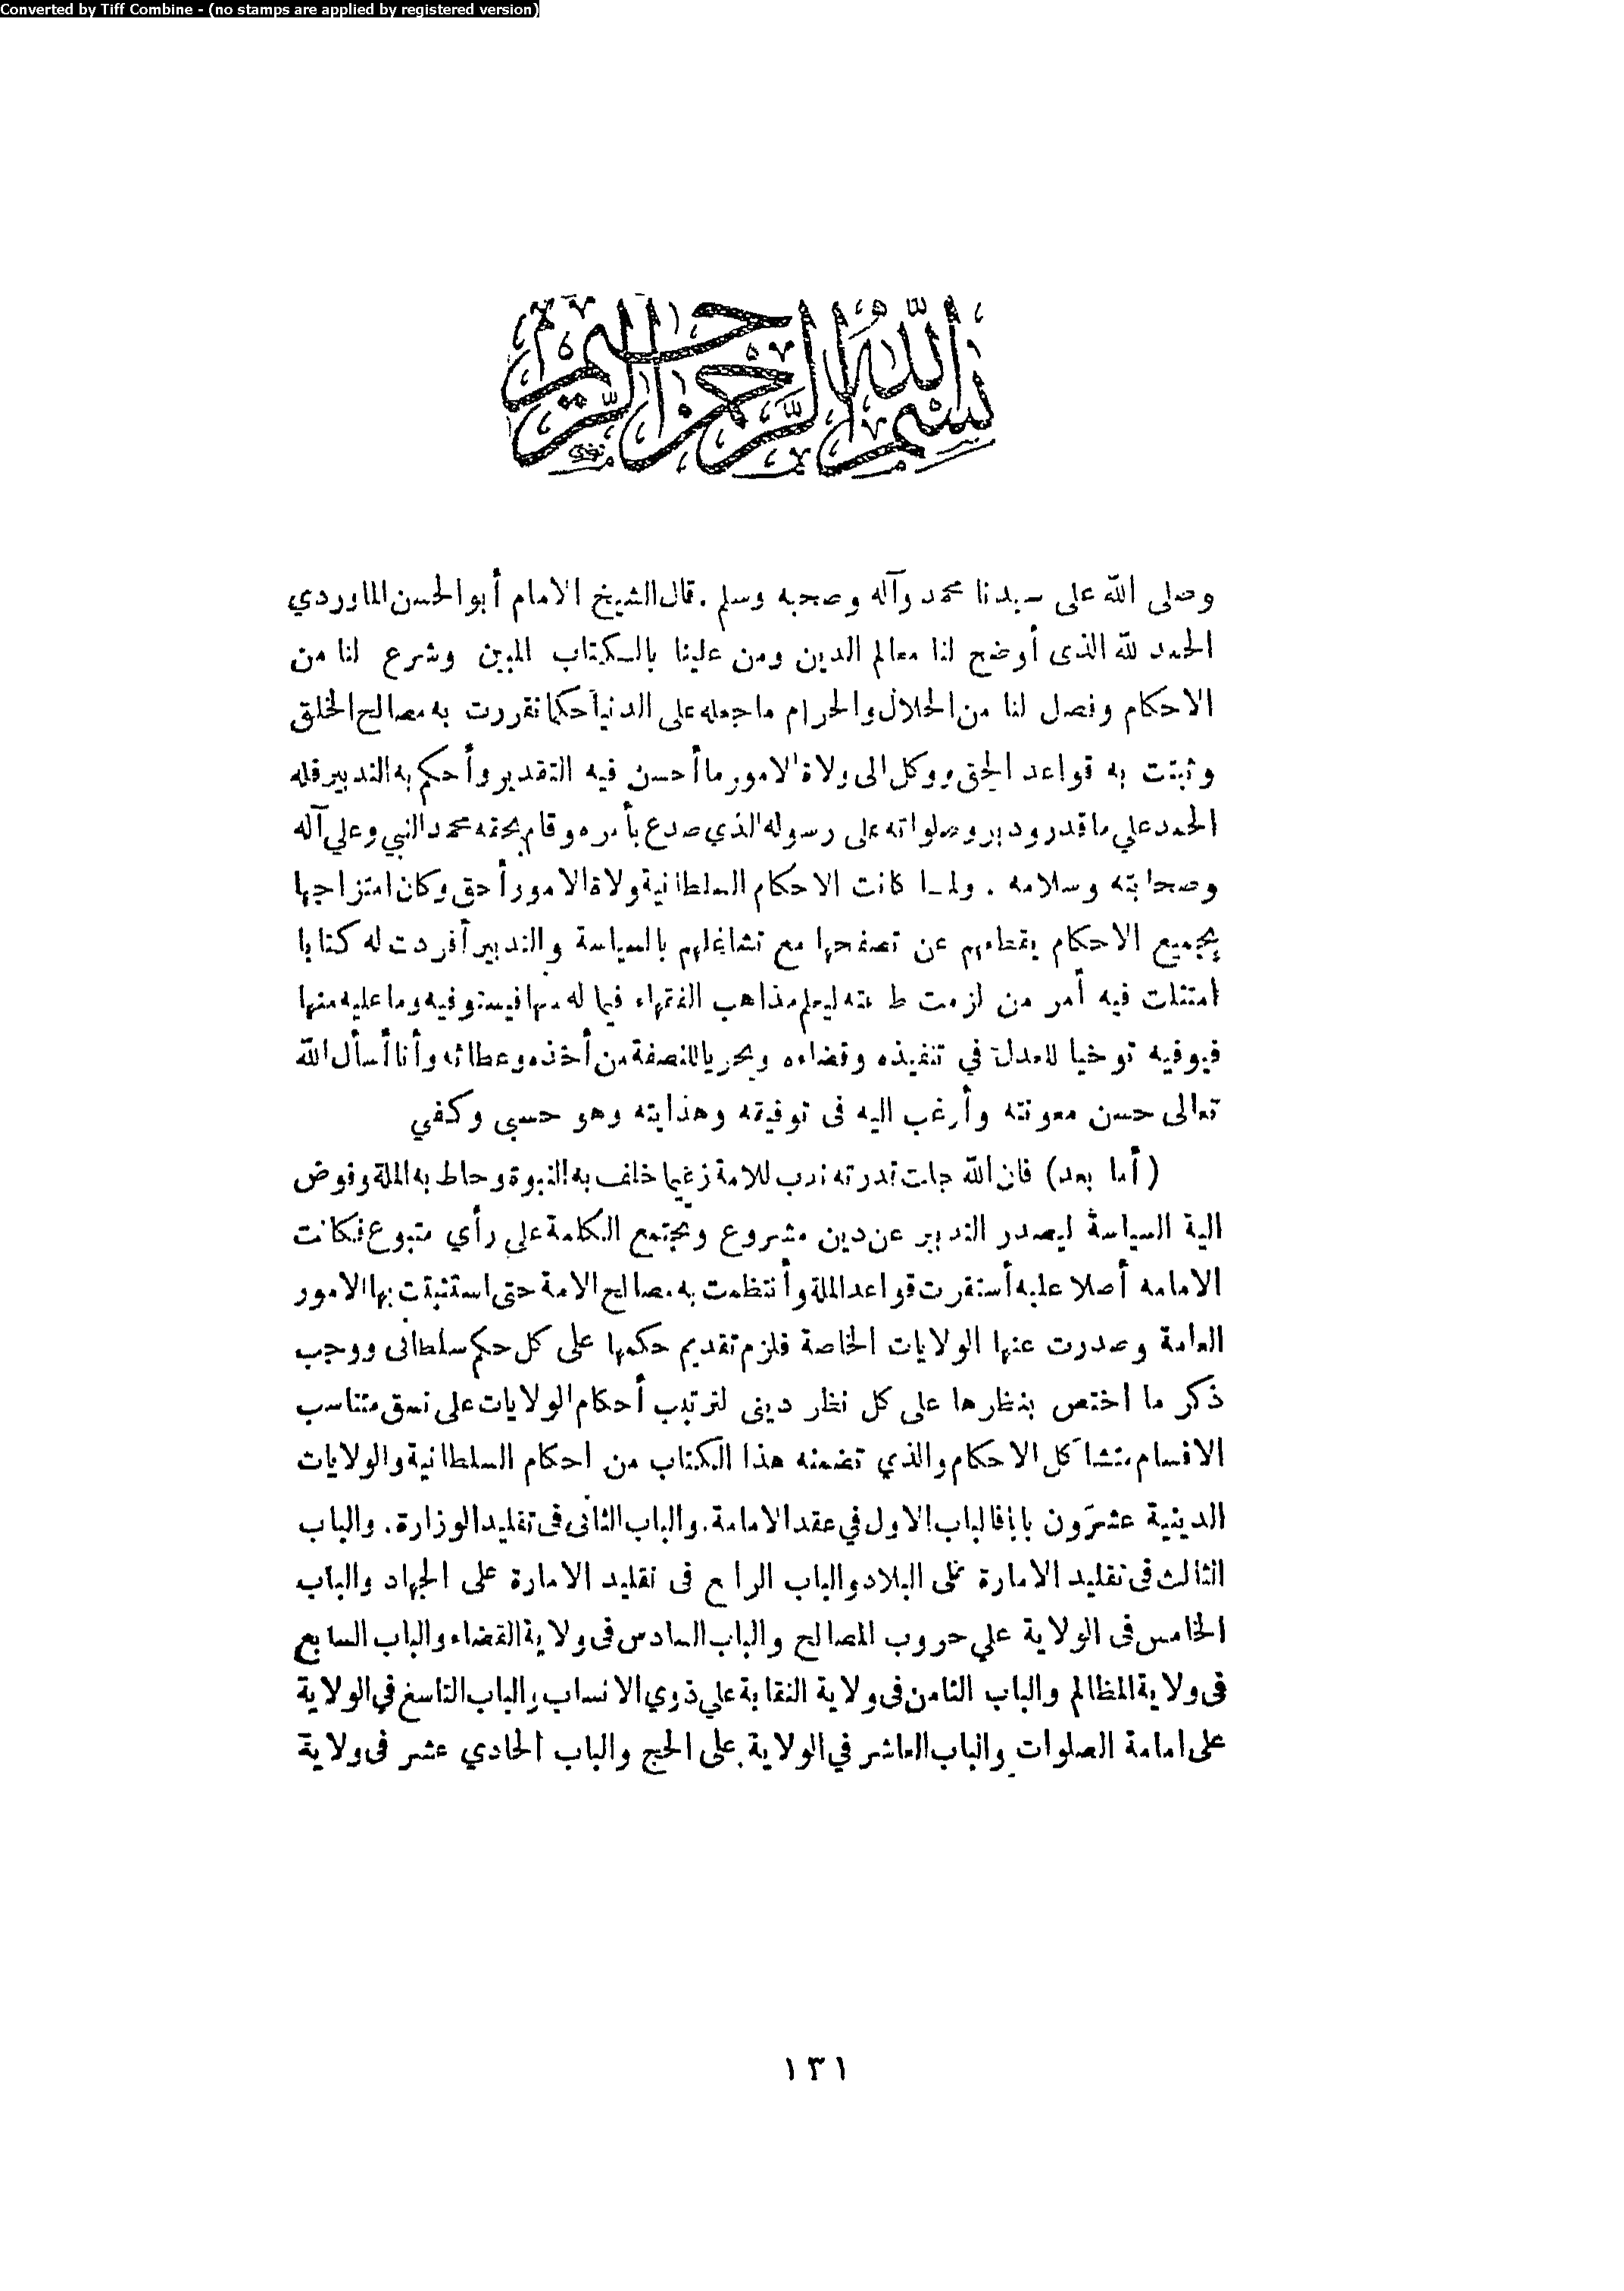 Converted by Tiff Combine - (no stamps are applied by registered version)
بسم الله الرحمن الرحيم
وصلى الله على سيدنا محمد وآله وصحبه وسلم . قال الشيخ الامام أبو الحسن الماوردي
الحمد لله الذى أوضح لنا معالم الدين ومن علينا بالكتاب المبين وشرع لنا من
الاحكام وفصل لنا من الحلال والحرام ما جعله على الدنيا حكما تقررت به مصالح الخلق
وثبتت به قواعد الحق ووكل الى ولاة الامور ما أحسن فيه التقدير وأحكم به التدبير فله
الحمد علي ما قدر ودبر وصلواته على رسوله الذي صدع بأمره وقام بحقه محمد النبي وعلي آله
وصحابته وسلامه . ولما كانت الاحكام السلطانية ولاة الامور أحق وكان امتزاجها
بجميع الاحكام يقطعهم عن تصفحها مع تشاغلهم بالسياسة والتدبير أفردت له كتابا
امتثلت فيه أمر من لزمت طاعته ليعلم مذاهب الفقهاء فيما له منها فيستوفيه وما عليه منها
فيوفيه توخيا للعدل في تنفيذه وقضاءه وتحريا للنصفة من أخذه وعطائه وأنا أسأل الله
تعالى حسن معونته وأرغب اليه فى توفيقه وهدايته وهو حسبى وكفي
(أما بعد) فان الله جلت قدرته ندب للامة زعيما خلف به النبوة وحاط به الملة وفوض
الية السياسة ليصدر التدبير عن دين مشروع وتجتمع الكلمة على رأي متبوع فكانت
الامامه أصلا عليه أستقرت قواعد الملة وأنتظمت به مصالح الامة حتى استثبتت بها الامور
العامة وصدرت عنها الولايات الخاصة فلزم تقديم حكمها على كل حكم سلطانى ووجب
ذكر ما اختص بنظرها على كل نظر دينى لترتيب أحكام الولايات على نسق متناسب
الاقسام متشاكل الاحكام والذي تضمنه هذا الكتاب من احكام السلطانية والولايات
الدينية عشرون بابا فالباب الاول في عقد الامامة . والباب الثانى فى تقليد الوزارة . والباب
الثالث فى تقليد الامارة على البلاد والباب الرابع فى تقليد الامارة على الجهاد والباب
الخامس فى الولاية علي حروب المصالح والباب السادس فى ولاية القضاء والباب السابع
فى ولاية المظالم والباب الثامن فى ولاية النقابة علي ذوي الانساب والباب التاسع في الولاية
على امامة الصلوات والباب العاشر في الولاية على الحج والباب الحادي عشر فى ولاية
١٣١